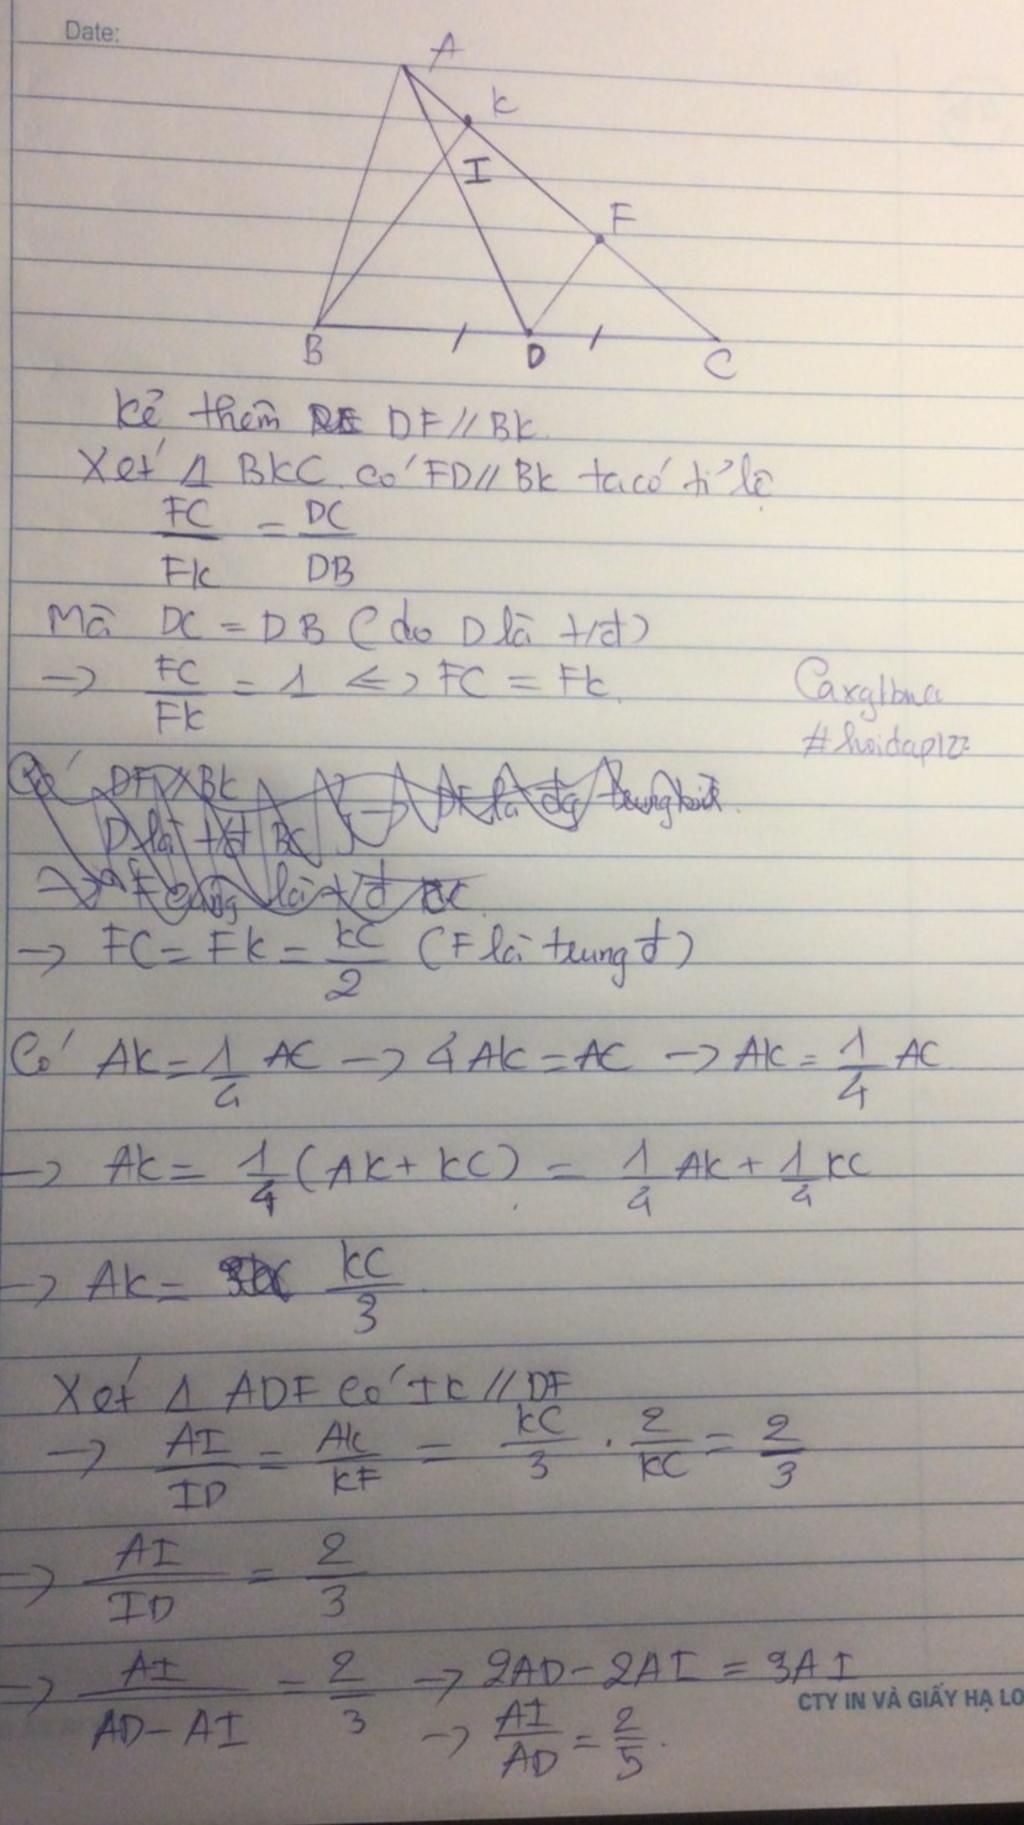 Date:
A
K
I
F
B
D
C
Kẻ thêm DF // BK.
Xét Δ BKC có FD // BK ta có tỉ lệ
FC/FK = DC/DB
Mà DC = DB (do D là t/đ)
→ FC/FK = 1 <=> FC = FK
#hoidap122
→ FC = FK = KC/2 (F là trung đ)
Có AK = 1/4 AC → 4AK = AC → AK = 1/4 AC
→ AK = 1/4 (AK + KC) = 1/4 AK + 1/4 KC
→ AK = KC/3
Xét Δ ADF có IK // DF
→ AI/ID = AK/KF = KC/3 . 2/KC = 2/3
→ AI/ID = 2/3
→ AI/AD-AI = 2/3 → 2AD - 2AI = 3AI
CTY IN VÀ GIẤY HẠ LO
→ AI/AD = 2/5.